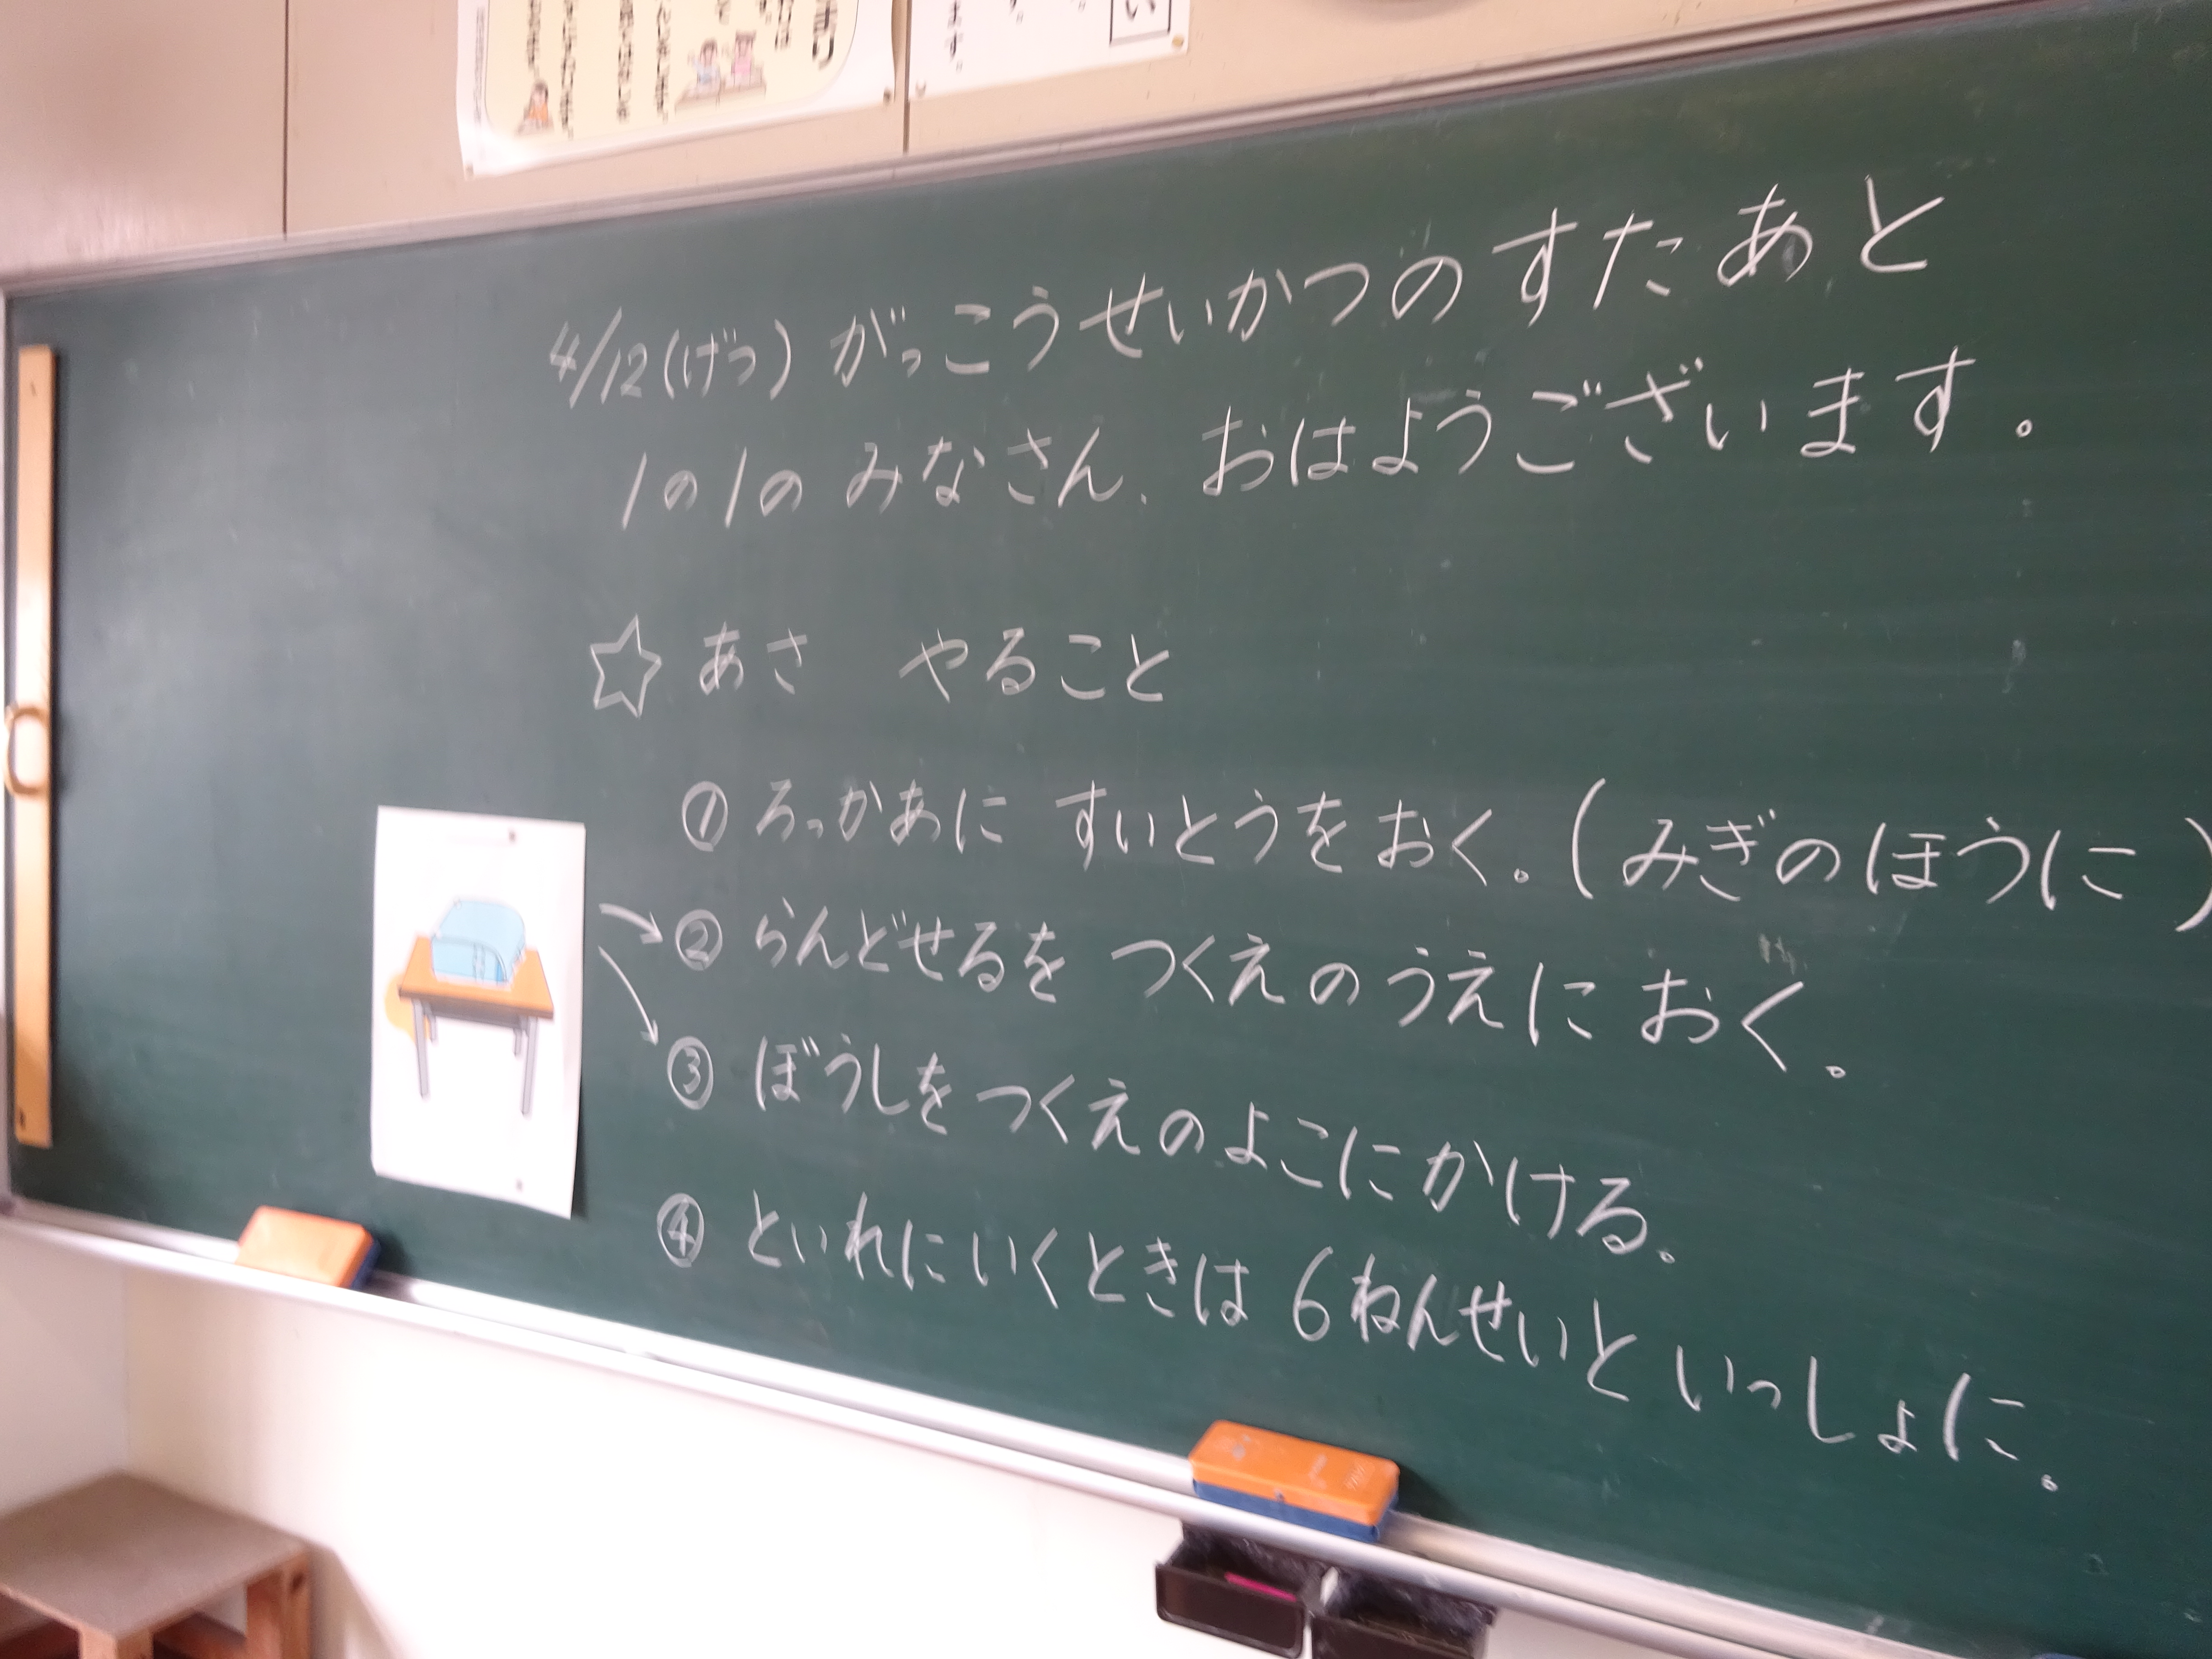 4/12(げつ) がっこうせいかつのすたあと
1の1の みなさん、おはようございます。
☆ あさ やること
① ろっかあに すいとうをおく。(みぎのほうに)
② らんどせるを つくえのうえに おく。
③ ぼうしをつくえのよこにかける。
④ といれにいくときは 6ねんせいと いっしょに。